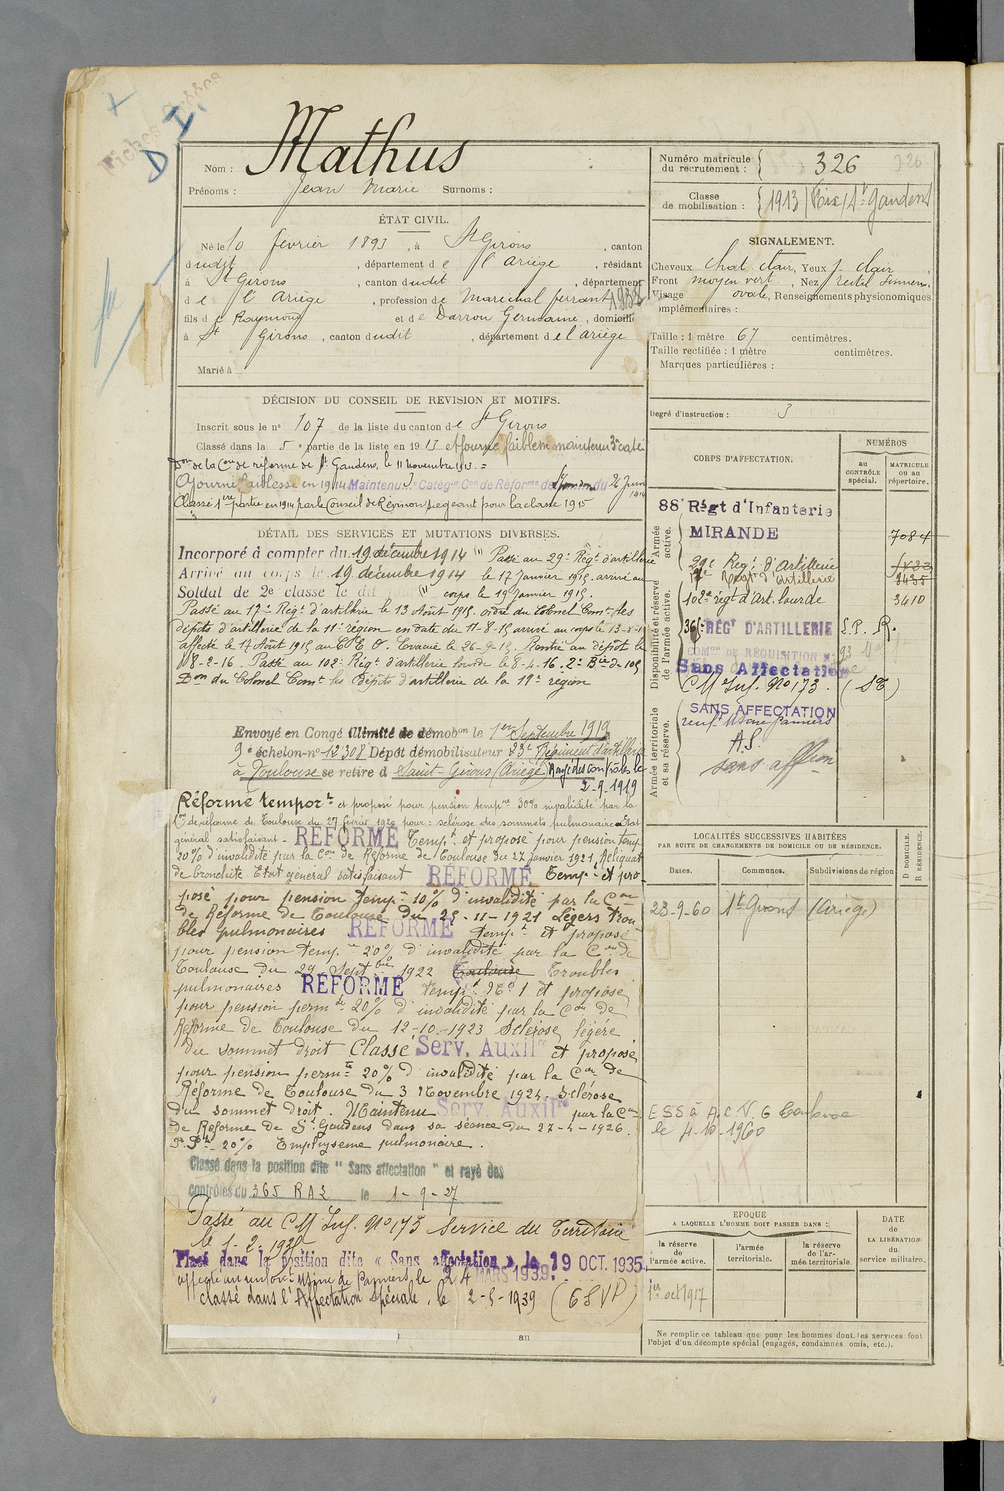 Fiches
D I.
Nom : Mathus
Prénoms : Jean Marie Surnoms :
ÉTAT CIVIL.
Né le 10 février 1893, à St Girons, canton
dudit, département de l'Ariège, résidant
à St Girons, canton dudit, département
de l'Ariège, profession de Maréchal ferrant
fils de Raymond et de Darrou Germaine, domicilié
à St Girons, canton dudit, département de l'Ariège
Marié à
DÉCISION DU CONSEIL DE REVISION ET MOTIFS.
Inscrit sous le n° 107 de la liste du canton de St Girons
Classé dans la 5e partie de la liste en 1913 Ajourné faiblesse maintenu
Don de la Con de réforme de St Gaudens, le 11 novembre 1913. =
Ajourné faiblesse en 1914 Maintenu Catégie Con de Réforme de du 2 Juin 1914
Classé 1ère partie en 1914 par le Conseil de Révision siégeant pour la classe 1915
DÉTAIL DES SERVICES ET MUTATIONS DIVERSES.
Incorporé à compter du 19 décembre 1914 Passé au 29e Régt d'artillerie
Arrivé au corps le 19 décembre 1914 le 17 Janvier 1915. arrivé au
Soldat de 2e classe le dit jour corps le 19 Janvier 1915.
Passé au 17e Régt d'artillerie le 13 Août 1915 ordre du Colonel Comt les
dépôts d'artillerie de la 11e région en date du 11-8-15 arrivé au corps le 13-8-15
affecté le 17 Août 1915 au C.E.O. Evacué le 26-9-15. Rentré au dépôt le
18-2-16. Passé au 102e Régt d'artillerie lourde le 8-4-16. 2e Bie de 105
Don du Colonel Comt les Dépôts d'artillerie de la 17e région
Envoyé en Congé illimité de démobon le 1er Septembre 1919
9e échelon-n° 12308 Dépôt démobilisateur 23e Régiment d'artillerie
à Toulouse se retire à Saint-Girons (Ariège) Rayé des contrôles le
2-9-1919
Réforme tempore et proposé pour pension tempre 30% invalidité par la
Con de réforme de Toulouse du 27 février 1920 pour: sclérose des sommets pulmonaires Etat
général satisfaisant - RÉFORMÉ Tempt et proposé pour pension temp
20% d'invalidité par la Con de Réforme de Toulouse du 27 janvier 1921, Reliquat
de bronchite Etat général satisfaisant RÉFORMÉ Tempt et pro
posé pour pension Tempre 10% d'invalidité par la Con
de Réforme de Toulouse du 25-11-1921 Légers trou-
bles pulmonaires RÉFORMÉ tempt et proposé
pour pension tempre 20% d'invalidité par la Con de
Toulouse du 29 Septbre 1922 Toulouse Troubles
pulmonaires RÉFORMÉ tempt N° 1 et proposé
pour pension permte 20% d'invalidité par la Con de
Réforme de Toulouse du 12-10-1923 Sclérose légère
du sommet droit Classé Serv. Auxilre et proposé
pour pension permte 20% d'invalidité par la Con de
Réforme de Toulouse du 3 Novembre 1924. Sclérose
du sommet droit. Maintenu Serv. Auxilre par la Con
de Réforme de St Gaudens dans sa séance du 27-4-1926.
P. Pte 20% Emphysème pulmonaire.
Classé dans la position dite "Sans affectation" et rayé des
contrôles du 365 RAL le 1-9-27
Passé au CM Inf. N° 173 Service du Territoire
le 1-2-1928
Placé dans la position dite « Sans affectation », le 19 OCT. 1935
le 24 MARS 1939.
classé dans l'Affectation Spéciale, le 2-5-1939 (GSVP)
au
Numéro matricule du recrutement : 326 326
Classe de mobilisation : 1913 Foix / St Gaudens
SIGNALEMENT.
Cheveux chat clair, Yeux clair,
Front moyen vert, Nez rectil
Visage ovale, Renseignements physionomiques
complémentaires :
Taille : 1 mètre 67 centimètres.
Taille rectifiée : 1 mètre centimètres.
Marques particulières :
Degré d'instruction : 3
CORPS D'AFFECTATION.
NUMÉROS
au CONTRÔLE spécial.
MATRICULE ou au répertoire.
Armée active.
88e Régt d'Infanterie
MIRANDE 7084
29e Reg. d'artillerie
Régt d'artillerie 1435
Disponibilité et réserve de l'armée active.
102e régt d'Art. lourde 3410
365e RÉGt D'ARTILLERIE S.P. R.
COMon DE RÉQUISITION N° 93
Sans Affectation
CM Inf. N° 173. (St)
Armée territoriale et sa réserve.
SANS AFFECTATION
A.S.
sans affton
LOCALITÉS SUCCESSIVES HABITÉES
PAR SUITE DE CHANGEMENTS DE DOMICILE OU DE RÉSIDENCE.
Dates. Communes. Subdivisions de région
D. DOMICILE. R. RÉSIDENCE.
23-9-60 St Girons (Ariège)
ESS à A.C.V.G Toulouse
le 4-10-1960
EPOQUE
A LAQUELLE L'HOMME DOIT PASSER DANS :
la réserve de l'armée active.
l'armée territoriale.
la réserve de l'armée territoriale.
DATE de LA LIBÉRATION du service militaire.
1er oct 1917
Ne remplir ce tableau que pour les hommes dont les services font
l'objet d'un décompte spécial (engagés, condamnés, omis, etc.).